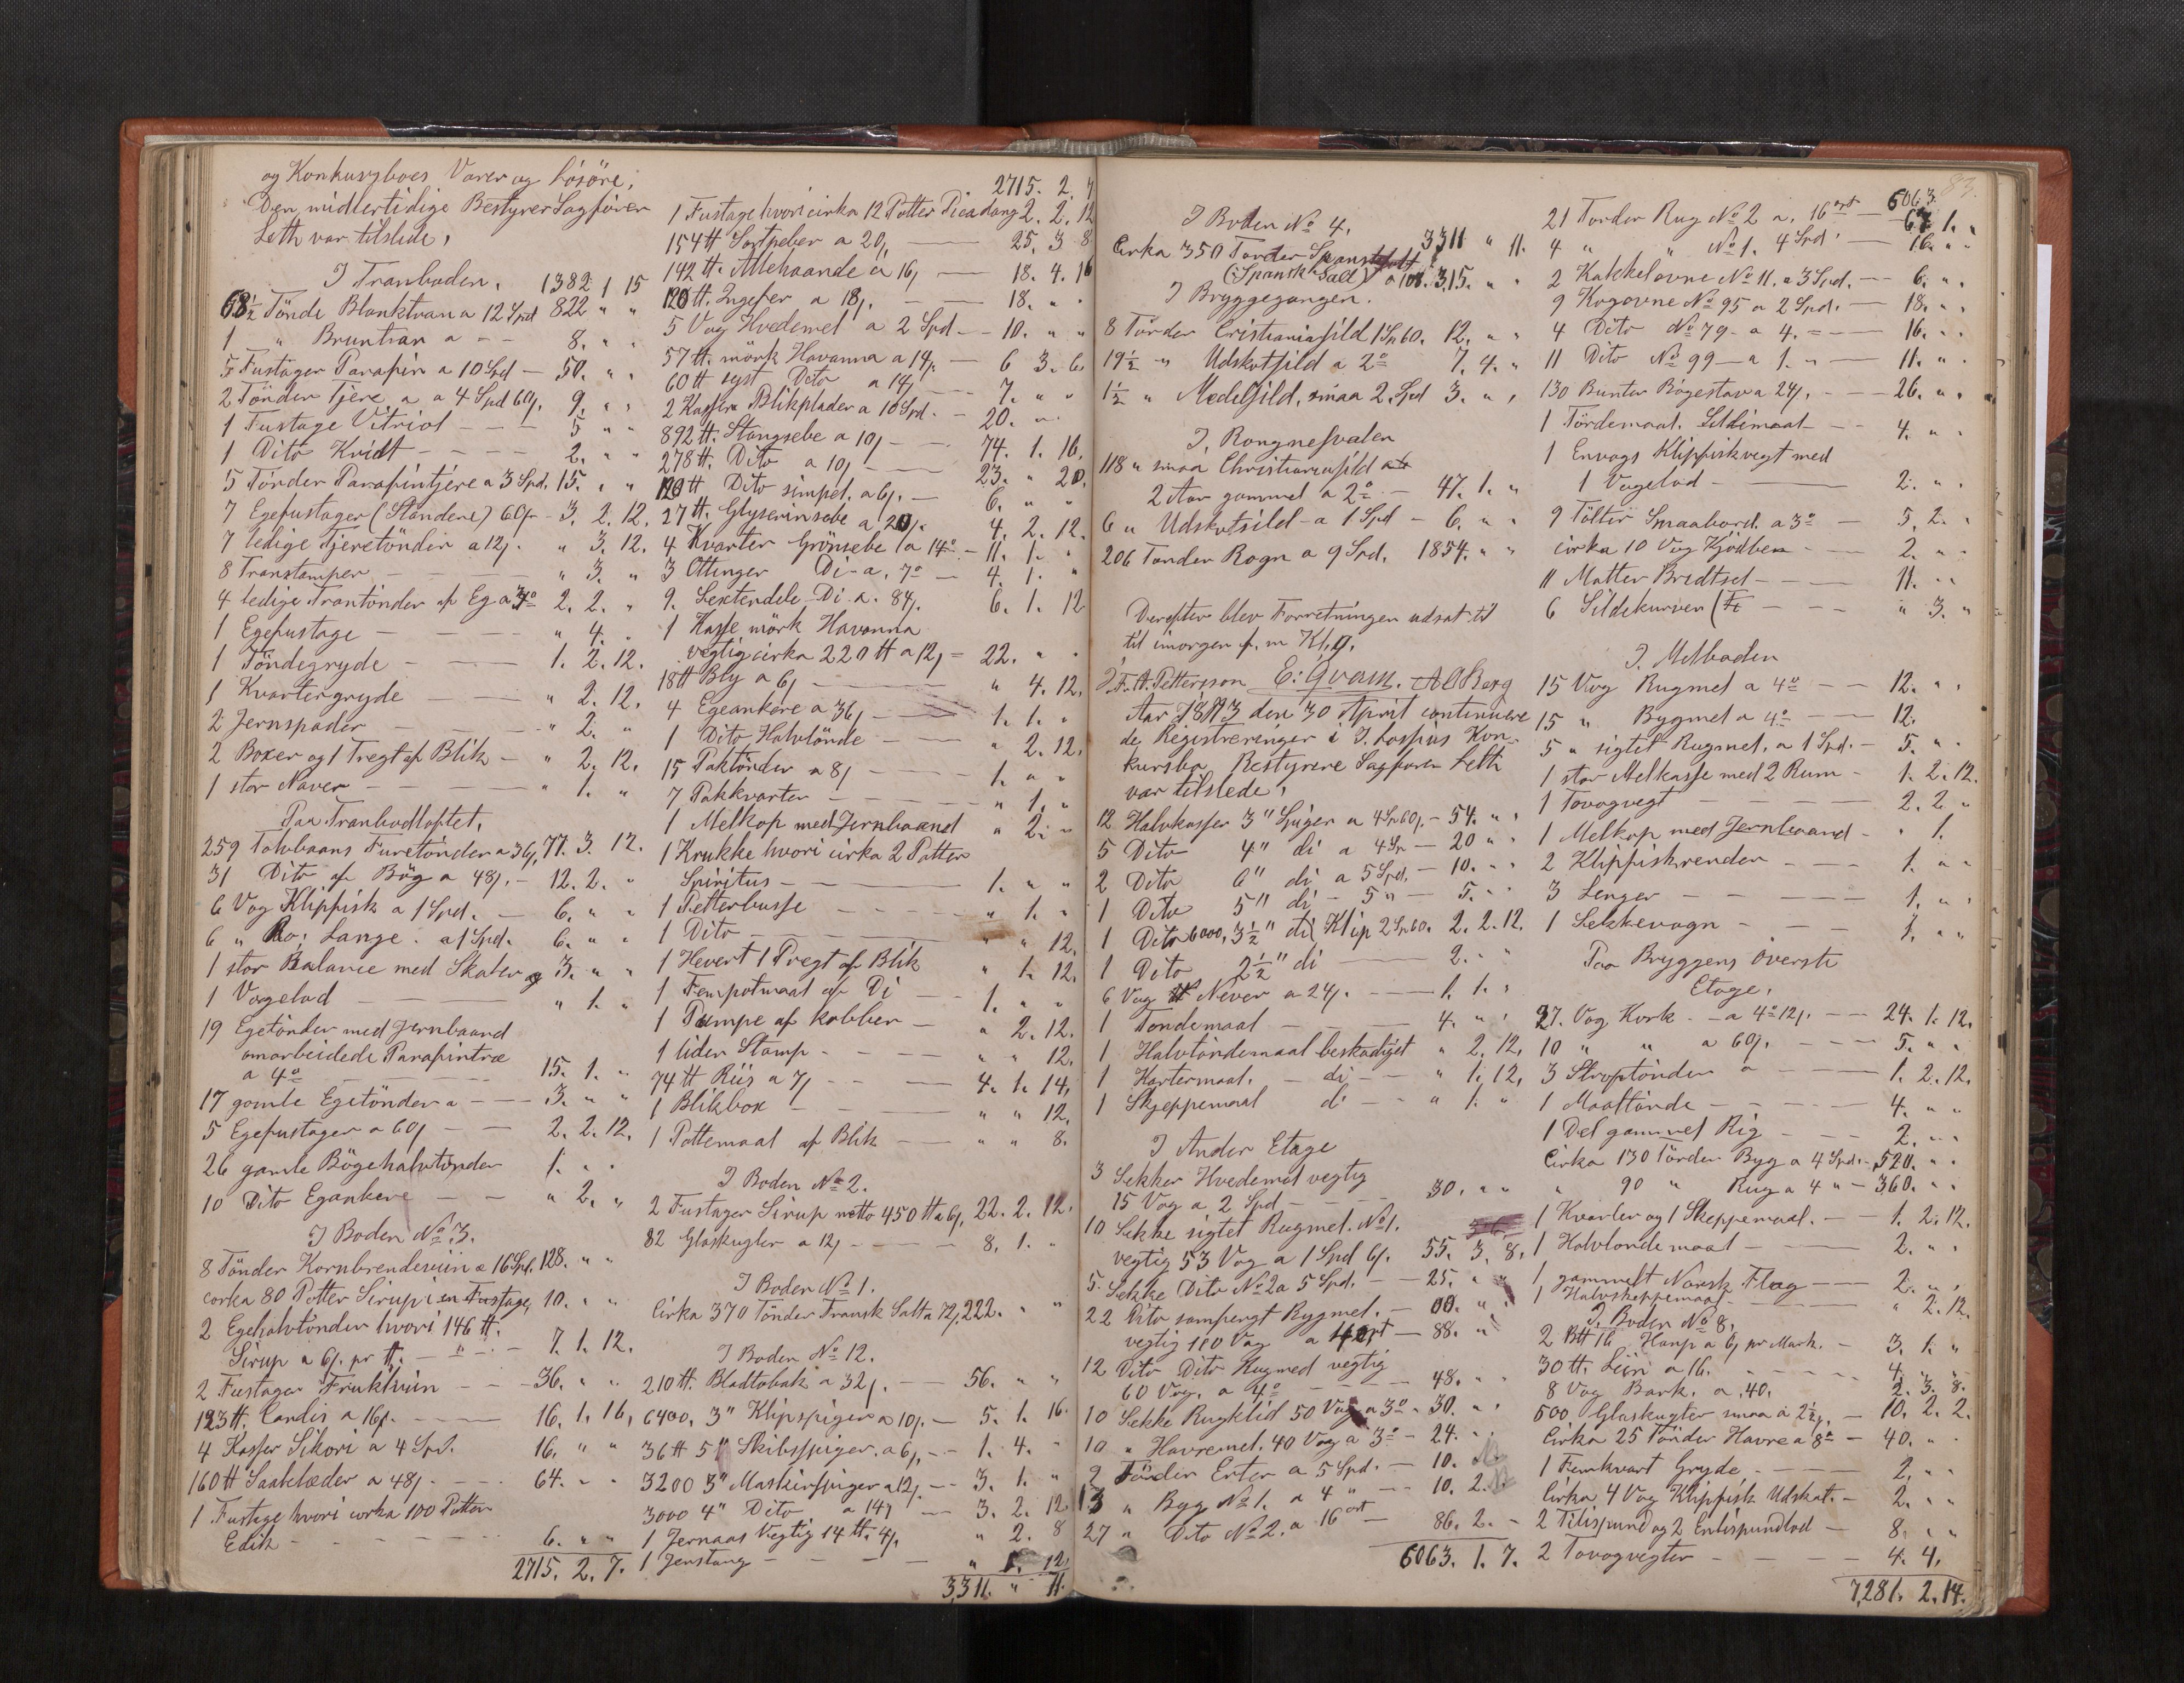 og Konkursboes Varer og Lösöre,
Den midlertidige Bestyrer Sagförer
Leth var tilstede,
I Tranboden. 1382 1 15
68½ Tönde Blanktran a 12 Spd 822 " "
1 " Bruntran a - - 8. " "
5 Fustager Parafin a 10 Spd - 50. " "
2 Tönder Tjere a a 4 Spd 60ß. 9. " "
1 Fustage Vitriol - - - 5 " "
1 Dito Kridt - - - - 2. " "
5 Tönder Parafintjere a 3 Spd. 15. " "
7 Egefustager (Standere) 60ß - 3. 2. 12.
7 ledige Tjeretönder a 12ß. " 3. 12.
8 Transtamper - - - - " 3. "
4 ledige Trantönder af Eg a 3º 2. 2. "
1 Egefustage - - - - " 4. "
1 Töndegryde - - - 1. 2. 12.
1 Kvartergryde - - " 2. 12.
2 Jernspader - - - " 2. "
2 Boxer og 1 Tregt af Blik - " 2. 12.
1 stor Naver - - - - " 1. "
Paa Tranbodloftet.
259 Tolvbaans Furetönder a 36ß, 77. 3. 12.
31 Dito af Bög a 48ß. - 12. 2. "
6 Vog Klipfisk a 1 Spd. - 6. " "
6 " Lange. a 1 Spd. 6. " "
1 stor Balance med Skaler og 3. " "
1 Vogelod - - - - " 1. "
19 Egetönder med Jernbaand
omarbeidede Parafintræ
a 4º - - - - 15. 1. "
17 gamle Egetönder a - - - 3. " "
5 Egefustager a 60ß - - 2. 2. 12.
26 gamle Bögehalvtönder 1. " "
10 Dito Egankere - - " 2. "
I Boden No. 3.
8 Tönder Kornbrendeviin a 16 Spd. 128. " "
cirka 80 Potter Sirup i en Fustage, 10. " "
2 Egehalvtönder hvori 146 ℔.
Sirup a 6ß. pr ℔. - " - 7. 1. 12.
2 Fustager Fruktviin - - 36. " "
123 ℔. Candis a 16ß. - - - 16. 1. 16,
4 Kasser Sikori a 4 Spd. 16. " "
160 ℔ Saalelæder a 48ß. - - 64. " "
1 Fustage hvori cirka 100 Potter
Edik - - - - - 6. " "
2715. 2. 7.
2715. 2. 7
1 Fustage hvori cirka 12 Potter Picadang 2. 2. 12
154 ℔ Sortpeber a 20ß — 25. 3 8
142 ℔. Allehaande a 16ß — 18. 4. 16
120 ℔. Ingefer a 18ß. - - 18. " "
5 Vog Hvedemel a 2 Spd - - 10. " "
57 ℔. mörk Havanna a 14ß. — 6 3. 6.
60 ℔ lyst Dito a 14ß - - 7. " "
2 Kasser Blikplader a 10 Spd. - 20. " "
892 ℔. Stangsebe a 10ß - - 74. 1. 16.
278 ℔. Dito a 10ß - - 23. " 20.
120 ℔ Dito simpel. a 6ß. - 6. " "
27 ℔. Glyserinsebe a 20ß. 4. 2. 12.
4 Kvarter Grönsebe a 14º - 11. 1. "
3 Ottinger Di - a. 7º - 4. 1. "
9. Sextendele Di - a. 84ß. 6. 1. 12
1 Kasse mörk Havanna
vegtig cirka 220 ℔ a 12ß = 22. " "
18 ℔ Bly a 6ß - - - " 4. 12.
4 Egeankere a 36ß - - 1. 1. "
1 Dito Halvtönde - - " 2. 12.
15 Paktönder a 8ß - - 1. " "
7 Pakkvarter - - - - " 1. "
1 Melkop med Jernbaand " 2. "
1 Krukke hvori cirka 2 Potter
Spiritus - - - - 1. " "
1 Peberbusse - - - " 1. "
1 Dito - - - - " " 12.
1 Hevert 1 Tregt af Blik " 1. 12.
1 Fempotmaal af Di - 1. " "
1 Pumpe af kobber - " 2. 12.
1 liden Stamp - - - " " 12.
74 ℔ Riis a 7ß - - - 4. 1. 14.
1 Blikbox - - - " " 12.
1 Pottemaal af Blik - - " " 8.
I Boden No 2.
2 Fustager Sirup netto 450 ℔ a 6ß. 22. 2. 12.
82 Glaskugler a 12ß - - - 8. 1. "
I Boden No 1.
Cirka 370 Tönder Fransk Salt a 72ß, 222. " "
I Boden No 12.
210 ℔. Bladtobak a 32ß. - 56. " "
6400. 3" Klipspiger a 10ß. - 5. 1. 16.
36 ℔ 5" Skibsspiger. a 6ß - - 1. 4. "
3200 3" Maskinspiger a 12ß. - - 3. 1. "
3000 4" Dito a 14ß - - 3. 2. 12
1 Jernaas Vegtig 14 ℔. 4ß. " 2. 8
1 Jenstang - - - - " 1. 12.
3311. " 11.
83.
I Boden No 4. 3311 " 11.
Cirka 350 Tönder
(Spansk Salt) a 108. 315. " "
I Bryggegangen.
8 Tönder Cristianiasild 1 Sp 60. 12. " "
19½ " Udskotsild a 2º 7. 4. "
1½ " Medelsild, smaa 2 Spd 3. " "
I. Rongnesvalen
118 " smaa Christianiasild
2 Aar gammel a 2º - 47. 1. "
6 " Udskotsild a 1 Spd - 6. " "
206 Tönder Rogn a 9 Spd. 1854. " "
Derefter blev Forretningen udsat til
til imorgen f. m Kl. 9.
F. A. Pettersson E. Qvam. A O Berg
Aar 1873 den 30 April continuere
de Registreringer i J. Kon-
kursbo, Bestyrere Sagförer Leth
var tilstede,
12 Halvkasser 3" Spiger a 4 Sp 60ß. - 54. " "
5 Dito 4" di a 4 Sp - 20 " "
2 Dito 6" di a 5 Spd. - 10. " "
1 Dito 5" di - 5 " - 5. " "
1 Dito 6000, 3½" di Klip 2 Sp 60. 2. 2. 12.
1 Dito 2½" di - - 2. " "
6 Vog Never a 24ß. - - 1. 1. "
1 Töndemaal - - - 4. " "
1 Halvtöndemaal beskadiget " 2. 12.
1 Kartermaal. - di - - " 1. 12.
1 Skjeppemaal di - - " 1. "
I Anden Etage
3 Sekker Hvedemel vegtig
15 Vog a 2 Spd - - - 30. " "
10 Sekke sigtet Rugmel. No 1.
vegtig 53 Vog a 1 Spd 6ß. 55. 3. 8.
5. Sekke Dito No 2 a 5 Spd. - - 25. " "
22 Dito sampengt Bygmel. -
vegtig 110 Vog a 4 ort - 88. " "
12 Dito Dito Rugmed vegtig
60 Vog. a 4º - - - 48. " "
10 Sekke Rugklid 50 Vog a 3º - 30. " "
10 " Havremel. 40 Vog a 3º - 24. " "
2 Tönder Erter a 5 Spd. - 10. "
13 " Byg No 1. a 4 " - - 10. 2. "
27 " Dito No 2. a 16 ort - 86. 2. -
6063. 1. 7.
6063.
21 Tönder Rug No 2 a. 16 ort - 67 1. "
4 " " No 1. 4 Spd. - 16. " "
2 Kakkelovne No 11. a 3 Spd. - - 6. " "
9 Kogovne No 95 a 2 Spd. - 18. " "
4 Dito No 79 - a 4. = - 16. " "
11 Dito No 99 - a 1. " - 11. " "
130 Bunter Bögestav a 24ß. - - 26. " "
1 Töndemaal. Sildemaal - - 4. " "
1 Envogs Klipfiskvegt med
1 Vogelod - - - 2. " "
9 Tölter Smaabord. a 3º - 5. 2. "
cirka 10 Vog Kjödben - - 2. " "
11 Matter Bredtsel - - - 11. " "
6 Sildekurver - - - " 3. "
I. Melboden
15 Vog Rugmel a 4º - - 12. " "
15 " Bygmel a 4º - - 12.
5 " sigtet Rugmel. a 1 Spd. - 5. " "
1 stor Melkasse med 2 Rum - 1. 2. 12.
1 Tovogvegt - - - - 2. 2 "
1 Melkop med Jernbaand - " 1.
2 Klipfiskrender - - - 1. " "
3 Lenger - - - - 1. " "
1 Sekkevogn - - - 1. " "
Paa Bryggens Överste
Etage.
27. Vog Kork. - a 4º 12ß. - - 24. 1. 12.
10 " " a 60ß. - - - 5. " "
3 Stroptönder a - - - 1. 2. 12.
1 Maaltönde - - - - 4. " "
1 Del gammel Rig - - - 2. " "
Cirka 130 Tönder Byg a 4 Spd. - 520. " "
" 90 " Rug a 4 " - 360. " "
1 Kvarter og 1 Skeppemaal. - - 1. 2. 12.
1 Halvtonde maal - - - 2. " "
1, gammelt Norsk Flag - - 2. " "
1 Halvskeppemaal - - - " 2. 12.
I. Boden No 8.
2 B℔ 16 Hamp a 6ß pr Mark. - 3. 1. "
30 ℔. Liin a 16. - - - 4. " "
8 Vog Bark. a. 40. 2. 3. 8.
500 Glaskugler smaa a 2½ß. - 10. 2. 2.
Cirka 25 Tönder Havre a 8º - 40. " "
1 Femkvart Gryde. - - - 2. " "
Cirka 4 Vog Klipfisk Udskot. - 2. " "
2 Tilispund og 2 Enlispundlod - 8. " "
2 Tovogvegter - - - - 4. 4.
7,281. 2. 14.